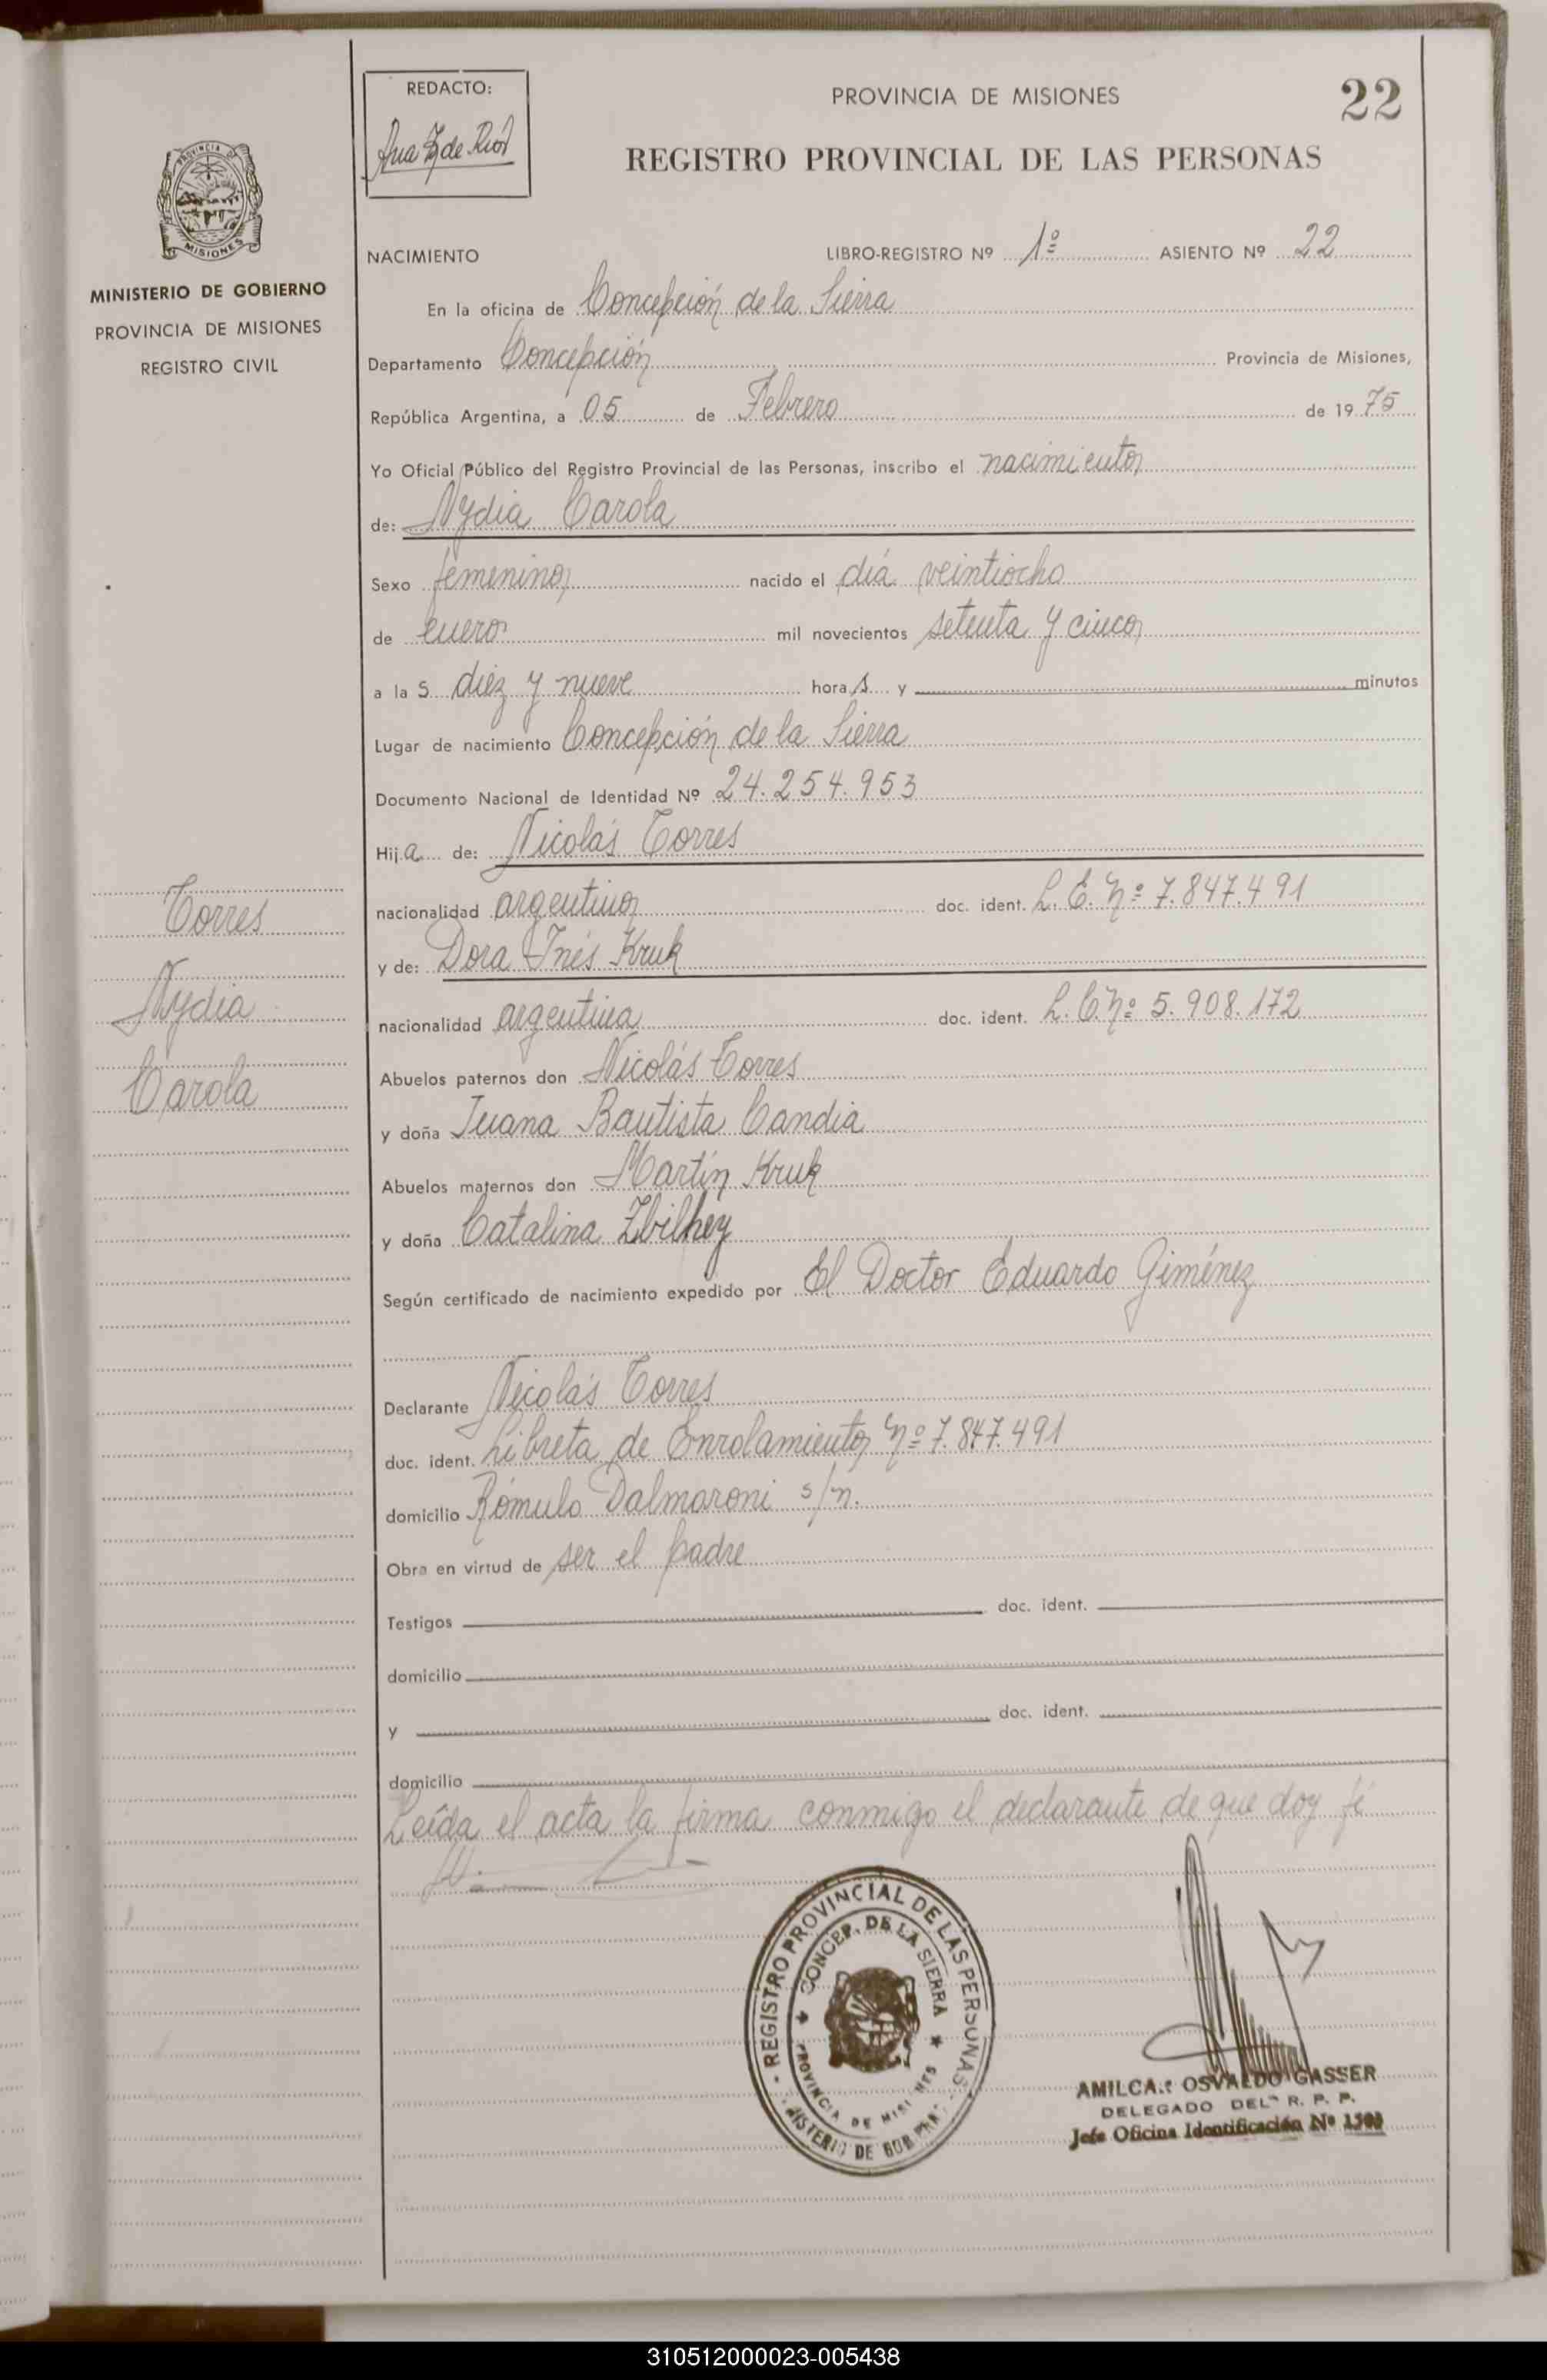 REDACTO:
Ana Z de Rios
PROVINCIA DE MISIONES
22
REGISTRO PROVINCIAL DE LAS PERSONAS
PROVINCIA DE
MISIONES
MINISTERIO DE GOBIERNO
PROVINCIA DE MISIONES
REGISTRO CIVIL
NACIMIENTO LIBRO-REGISTRO Nº 1º ASIENTO Nº 22
En la oficina de Concepción de la Sierra
Departamento Concepción Provincia de Misiones,
República Argentina, a 05 de Febrero de 1975
Yo Oficial Público del Registro Provincial de las Personas, inscribo el nacimiento
de: Nydia Carola
Sexo femenino nacido el día veintiocho
de enero mil novecientos setenta y cinco
a la s diez y nueve hora s y minutos
Lugar de nacimiento Concepción de la Sierra
Documento Nacional de Identidad Nº 24.254.953
Hija de: Nicolás Torres
nacionalidad argentino doc. ident. L. E. Nº 7.847.491
y de: Dora Inés Kruk
nacionalidad argentina doc. ident. L. C. Nº 5.908.172
Abuelos paternos don Nicolás Torres
y doña Juana Bautista Candia
Abuelos maternos don Martín Kruk
y doña Catalina Zbilhey
Según certificado de nacimiento expedido por El Doctor Eduardo Giménez
Declarante Nicolás Torres
doc. ident. Libreta de Enrolamiento Nº 7.847.491
domicilio Rómulo Dalmaroni s/n.
Obra en virtud de ser el padre
Testigos doc. ident.
domicilio
y doc. ident.
domicilio
Leída el acta la firma conmigo el declarante de que doy fé
Torres
Nydia
Carola
REGISTRO PROVINCIAL DE LAS PERSONAS
CONCEP. DE LA SIERRA
PROVINCIA DE MISIONES
DE GOB.
AMILCAR OSVALDO GASSER
DELEGADO DEL R. P. P.
Jefe Oficina Identificación Nº 1503
310512000023-005438